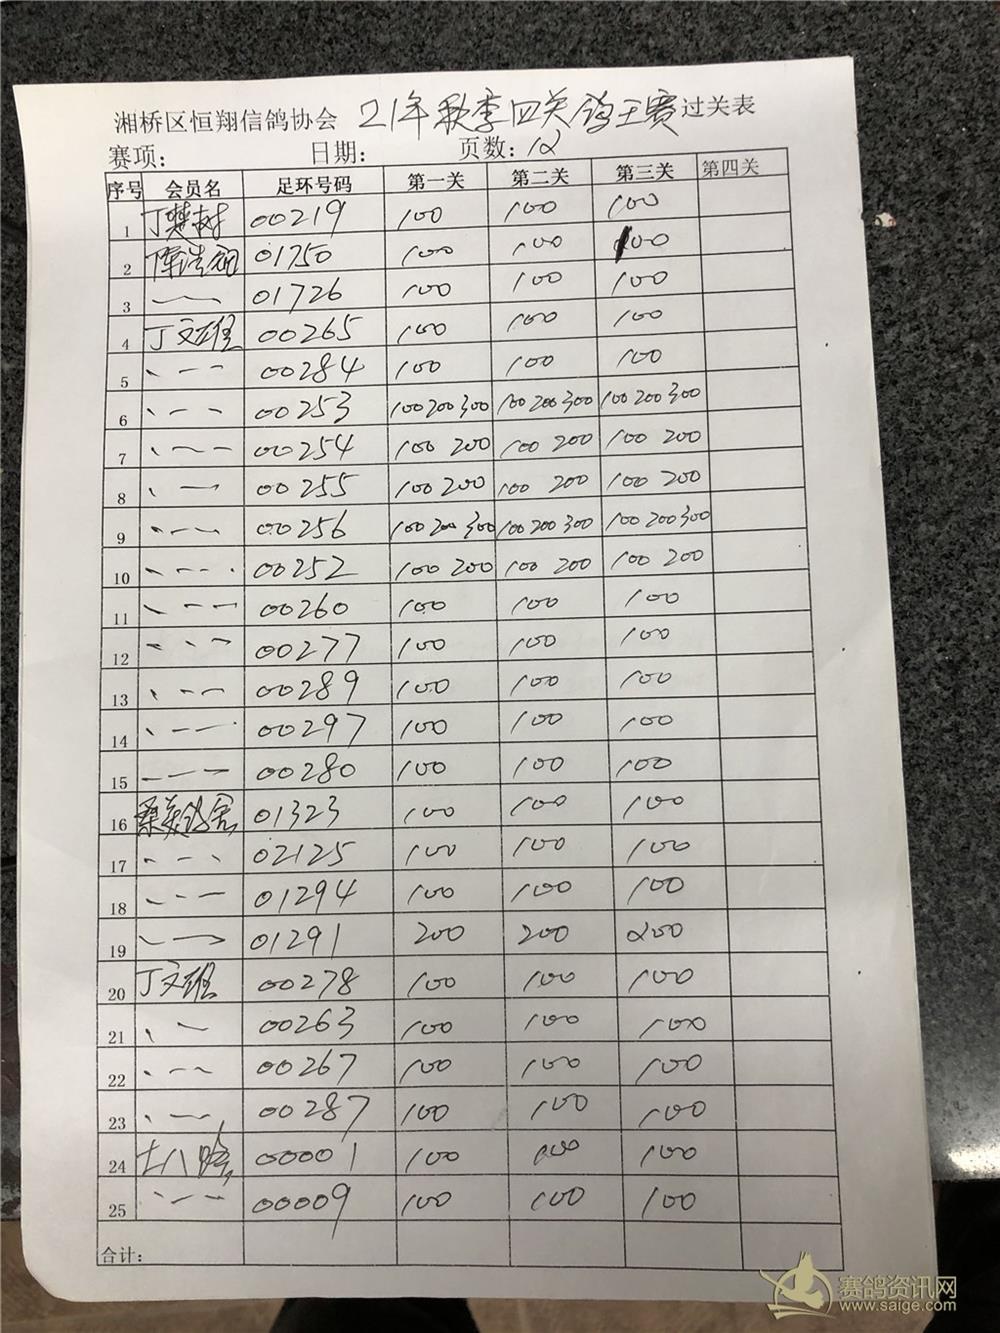 湘桥区恒翔信鸽协会 21年秋季四关鸽王赛过关表
赛项： 日期： 页数：12
序号 会员名 足环号码 第一关 第二关 第三关 第四关
1 丁楚树 00219 100 100 100
2 01750 100 100 100
3 01726 100 100 100
4 丁文 00265 100 100 100
5 00284 100 100 100
6 00253 100 200 300 100 200 300 100 200 300
7 00254 100 200 100 200 100 200
8 00255 100 200 100 200 100 200
9 00256 100 200 300 100 200 300 100 200 300
10 00252 100 200 100 200 100 200
11 00260 100 100 100
12 00277 100 100 100
13 00289 100 100 100
14 00297 100 100 100
15 00280 100 100 100
16 01323 100 100 100
17 02125 100 100 100
18 01294 100 100 100
19 01291 200 200 200
20 丁文 00278 100 100 100
21 00263 100 100 100
22 00267 100 100 100
23 00287 100 100 100
24 00001 100 100 100
25 00009 100 100 100
合计：
赛鸽资讯网
www.saige.com